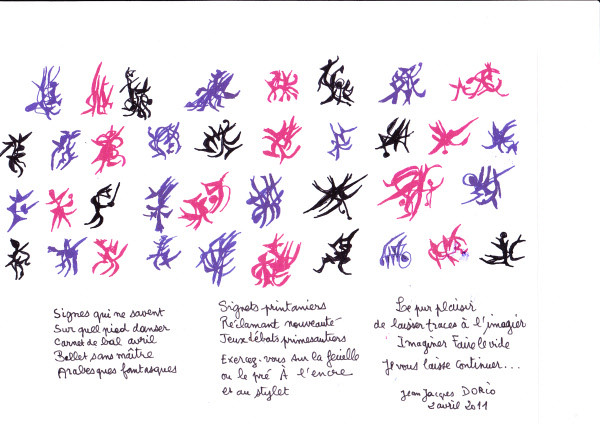 Signes qui ne savent
Sur quel pied danser
Carnet de bal avril
Ballet sans maître
Arabesques fantasques
Signets printaniers
Réclamant nouveauté
Jeux débats primesautiers
Exercez-vous sur la feuille
ou le pré À l'encre
et au stylet
Le pur plaisir
de laisser traces à l'imagier
Imaginer Faire le vide
Je vous laisse continuer...
Jean Jacques DORIO
2 avril 2011